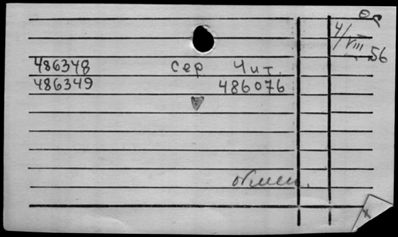 4/VIII 56
486348 сер Чит.
486349 486076
обмен.